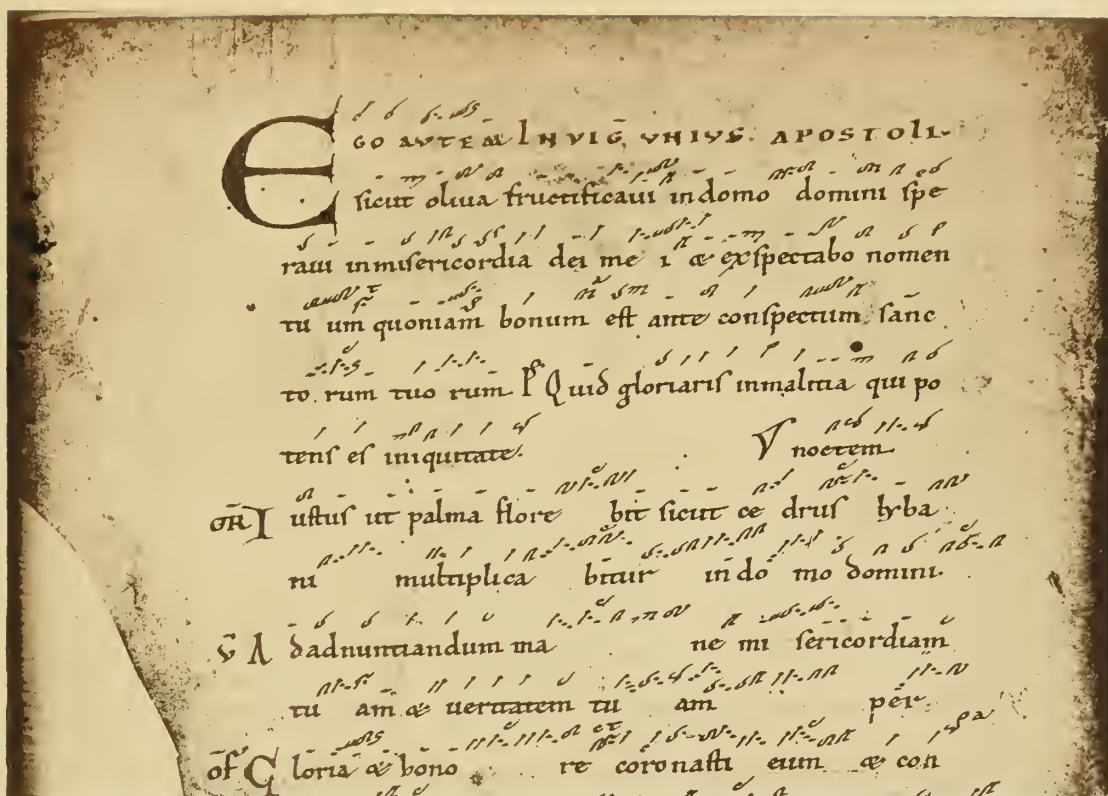 EGO AVTEM IN VIG̅. VNIVS. APOSTOLI.
sicut oliua fructificaui in domo domini spe
raui in misericordia dei me i & exspectabo nomen
tu um quoniam bonum est ante conspectum sanc
to rum tuo rum Ps̅ Quid gloriaris in malitia qui po
tens es in iquitate. V noctem.
GR̅ Iustus ut palma flore bit sicut ce drus lyba
ni multiplica bitur in do mo domini.
V̅ Ad adnuntiandum ma ne mi sericordiam
tu am & ueritatem tu am per
of̅ Gloria & hono re coronasti eum & con